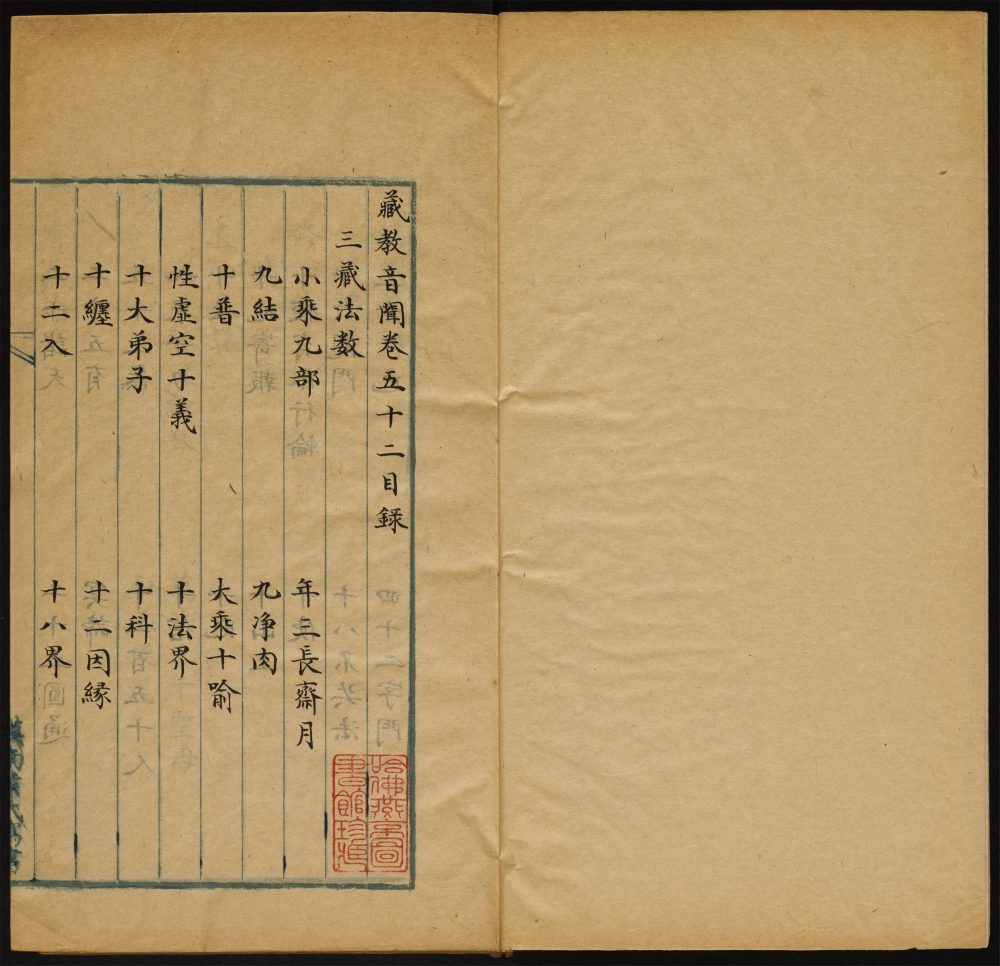 藏教音聞卷五十二目錄
三藏法数
小乘九部 年三長齋月
九結 九净肉
十普 大乘十喻
性虛空十義 十法界
十大弟子 十科
十纏 十二因緣
十二入 十八界
哈佛燕京圖
書館珍藏